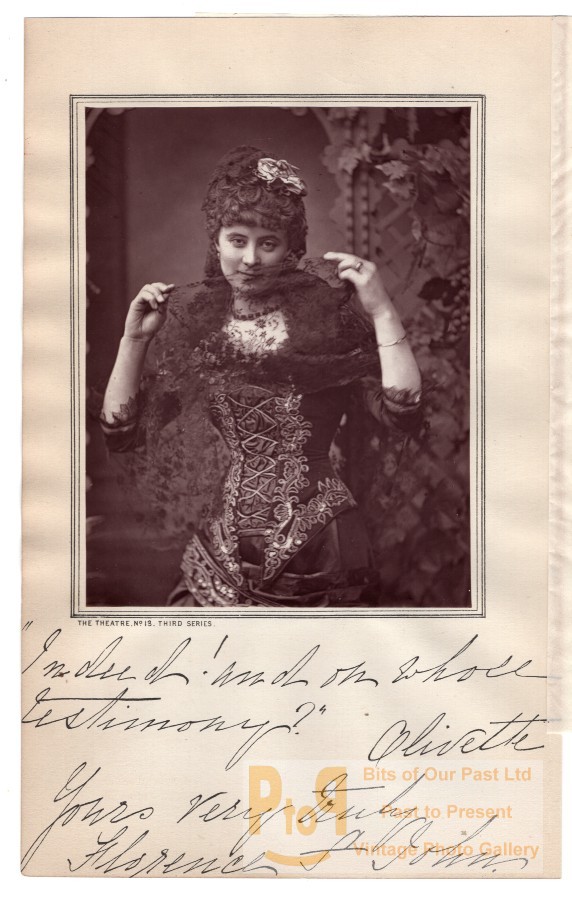 THE THEATRE. Nº 18. THIRD SERIES.
"Indeed! and on whose
testimony?"
Olivette
Yours very truly
Florence St John.
PtoP
Bits of Our Past Ltd
Past to Present
Vintage Photo Gallery